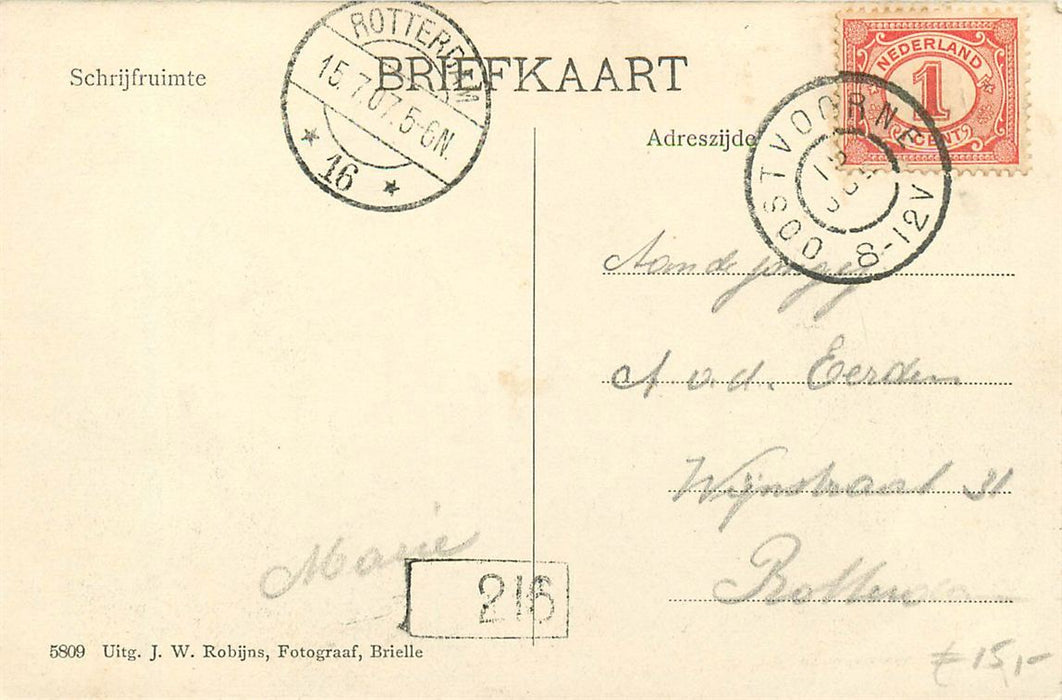 BRIEFKAART
Schrijfruimte
Adreszijde
ROTTERDAM
15.7.07.5-6N.
16
NEDERLAND
1
CENT
OOSTVOORNE
8-12V
Aan de
A v.d. Eerden
Wijnstraat 31
Rotterdam
Marie
216
5809 Uitg. J. W. Robijns, Fotograaf, Brielle
€ 15,-